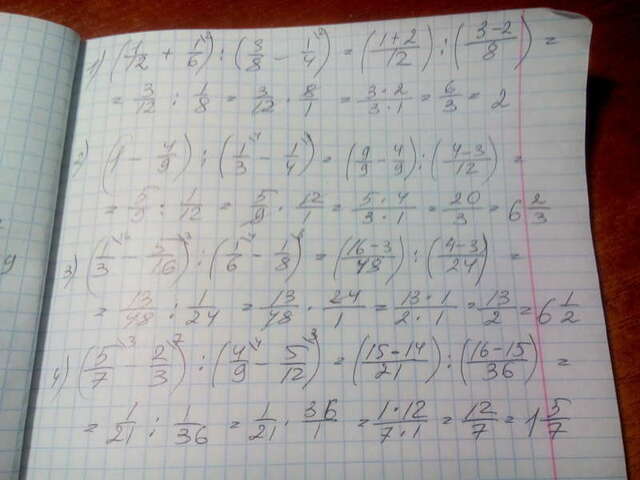 1) (1/12 + 1/6^2) : (3/8 - 1/4^2) = (1+2/12) : (3-2/8) =
= 3/12 : 1/8 = 3/12 · 8/1 = 3·2/3·1 = 6/3 = 2
2) (1 - 4/9) : (1/3^4 - 1/4^3) = (9/9 - 4/9) : (4-3/12) =
= 5/9 : 1/12 = 5/9 · 12/1 = 5·4/3·1 = 20/3 = 6 2/3
3) (1/3^16 - 5/16^3) : (1/6^4 - 1/8^3) = (16-3/48) : (4-3/24) =
= 13/48 : 1/24 = 13/48 · 24/1 = 13·1/2·1 = 13/2 = 6 1/2
4) (5/7^3 - 2/3^7) : (4/9^4 - 5/12^3) = (15-14/21) : (16-15/36) =
= 1/21 : 1/36 = 1/21 · 36/1 = 1·12/7·1 = 12/7 = 1 5/7